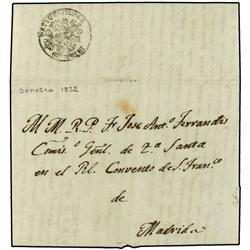 DAMASCO 1832
M. M. R. P. Fr. Jose Ant.º Ferrandis
Comis.º Genl. de Tª Santa
en el Rl. Convento de S. Fran.º
de
Madrid.